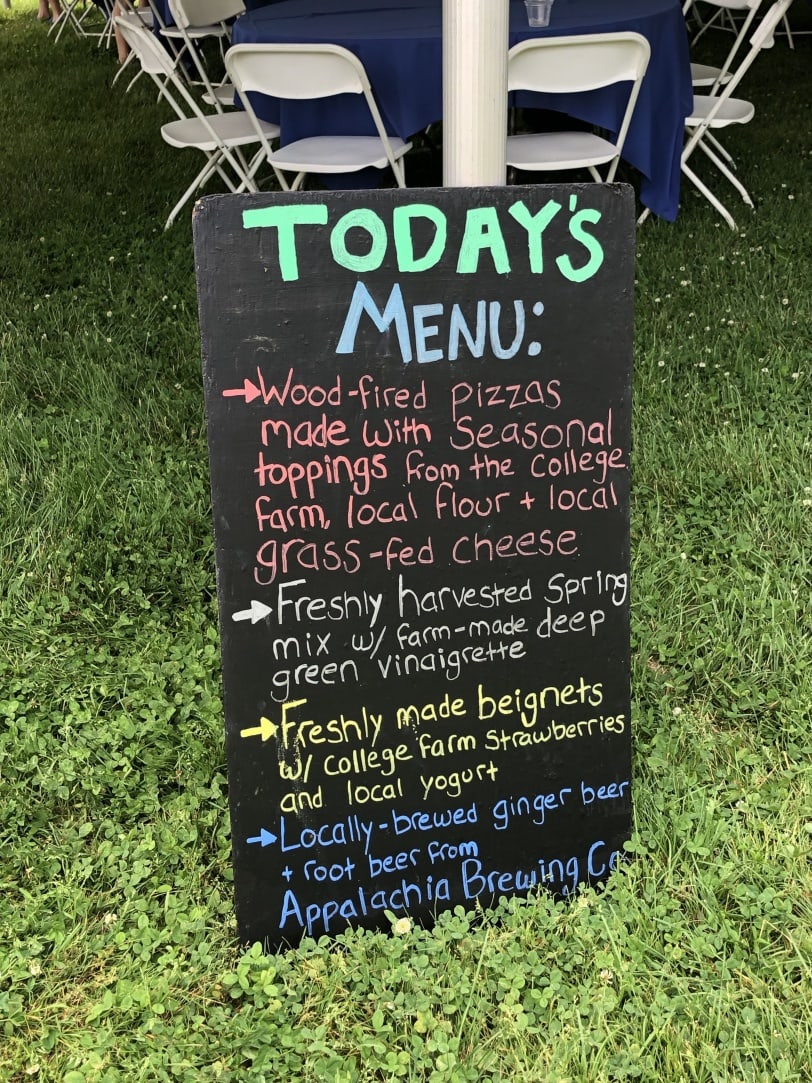 TODAY'S
MENU:
→Wood-fired pizzas
made with Seasonal
toppings from the College
farm, local flour + local
grass-fed cheese
→Freshly harvested Spring
mix w/ farm-made deep
green vinaigrette
→Freshly made beignets
w/ College Farm Strawberries
and local yogurt
→Locally-brewed ginger beer
+ root beer from
Appalachia Brewing Co